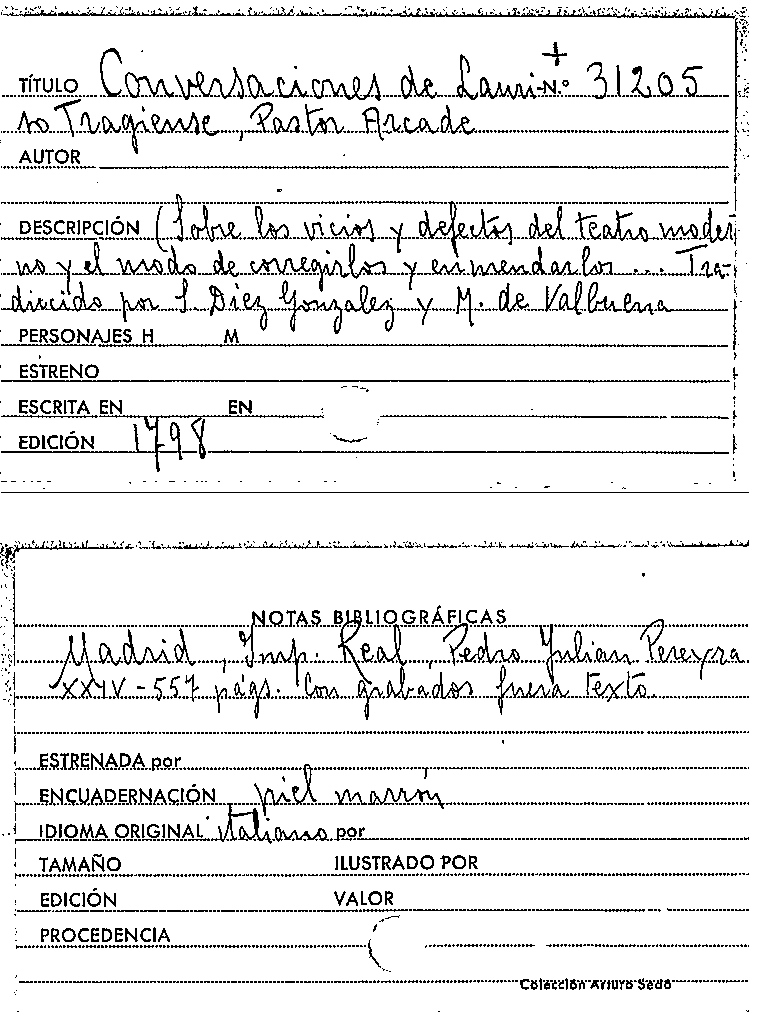 TÍTULO Conversaciones de Lauri- N.º + 31205
so Tragiense, Pastor Arcade
AUTOR
DESCRIPCIÓN (Sobre los vicios y defectos del teatro moder
no y el modo de corregirlos y enmendarlos ... Tra-
ducido por S. Díez González y M. de Valbuena
PERSONAJES H M
ESTRENO
ESCRITA EN EN
EDICIÓN 1798
NOTAS BIBLIOGRÁFICAS
Madrid, Imp. Real, Pedro Julian Pereyra
XXIV-557 págs. Con grabados fuera texto.
ESTRENADA por
ENCUADERNACIÓN piel marrón
IDIOMA ORIGINAL italiano por
TAMAÑO ILUSTRADO POR
EDICIÓN VALOR
PROCEDENCIA
Colección Arturo Sedó